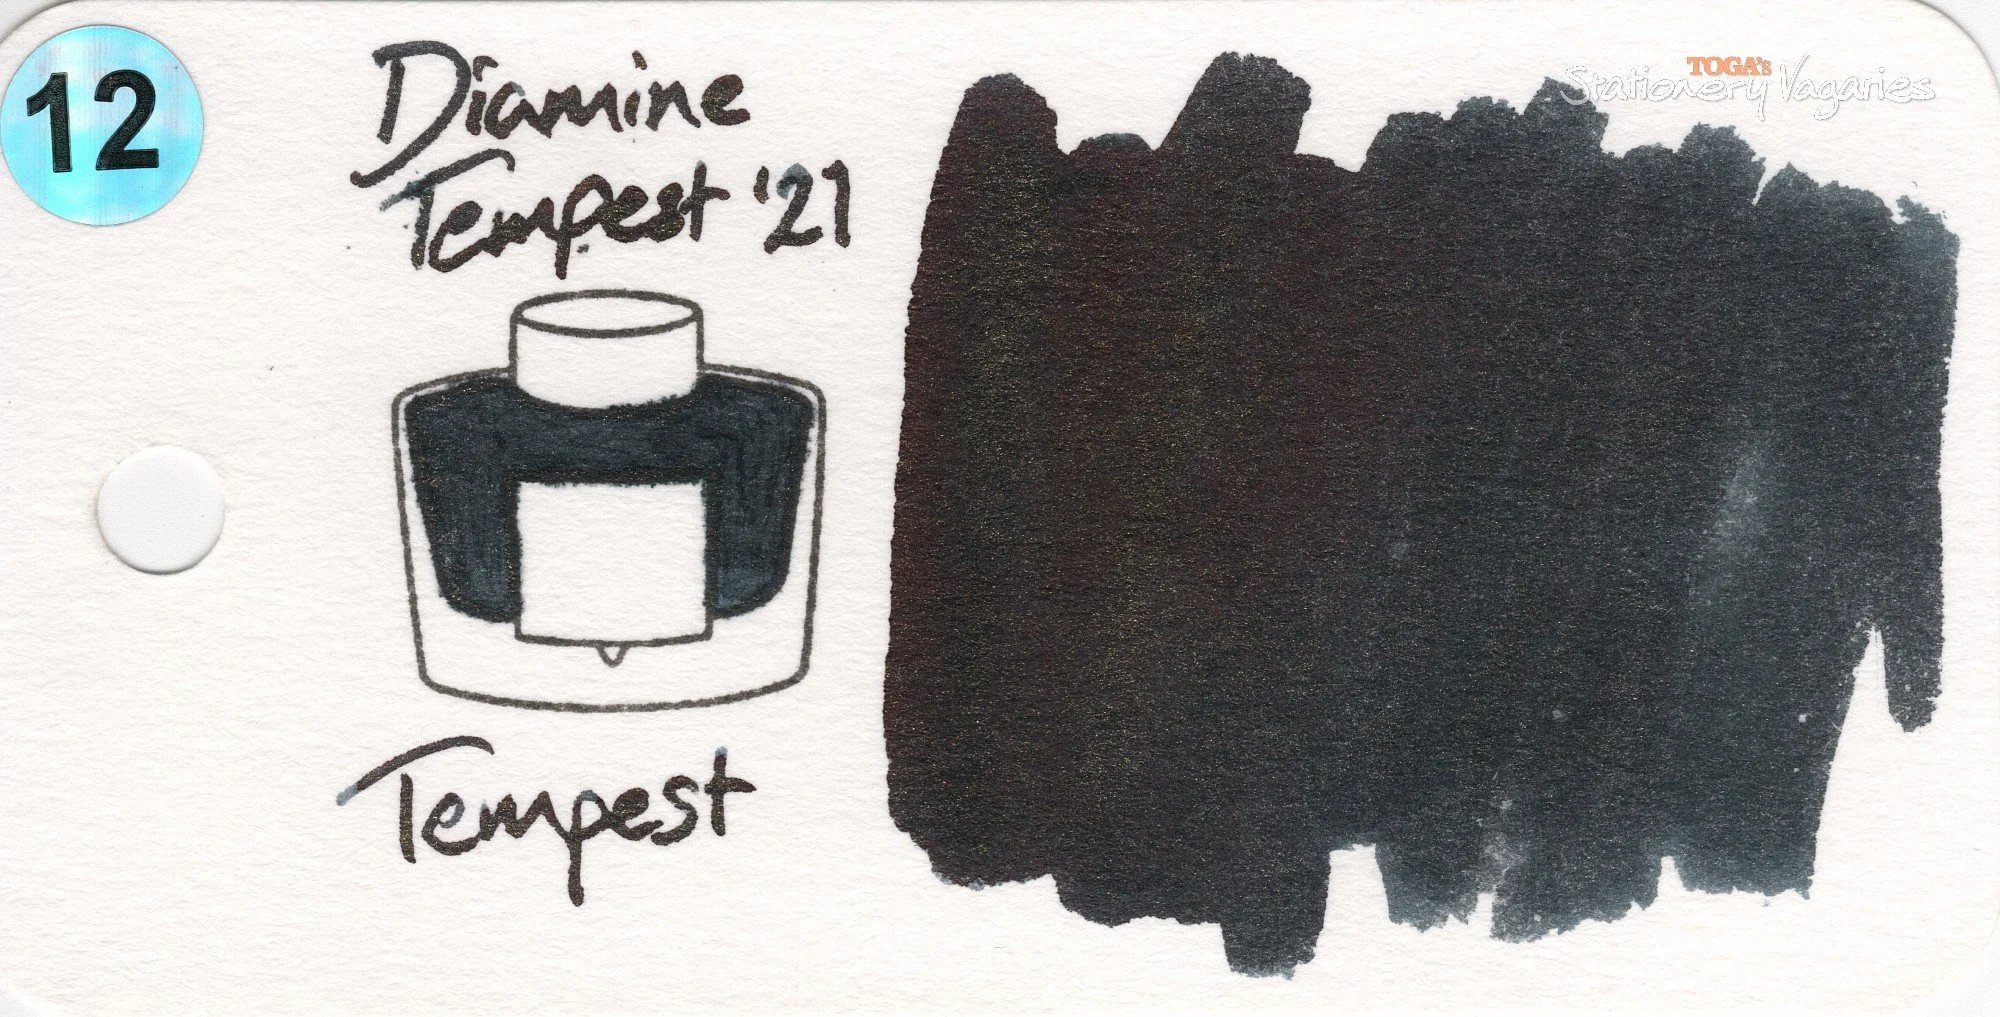 12
Diamine
Tempest '21
TOGA's
Stationery Vagaries
Tempest